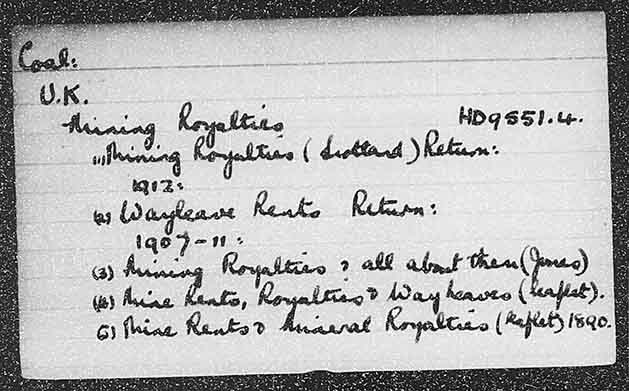 Coal:
U.K.
Mining Royalties HD9551.4.
(1) Mining Royalties (Scotland) Return:
1912:
(2) Wayleave Rents Return:
1907-11:
(3) Mining Royalties & all about them (Jones)
(4) Mine Rents, Royalties & Wayleaves (leaflet).
5) Mine Rents & Mineral Royalties (leaflet) 1890.